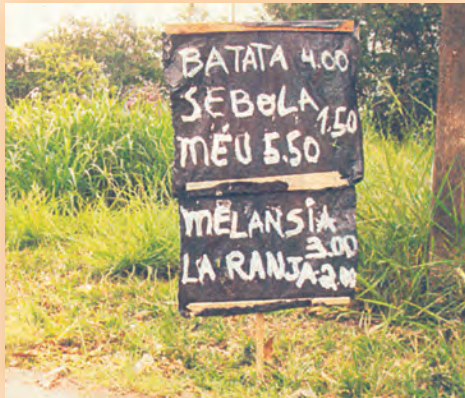 BATATA 4.00
SEBOLA 1.50
MÉU 5.50
MELANSIA 3.00
LA RANJA 2.00